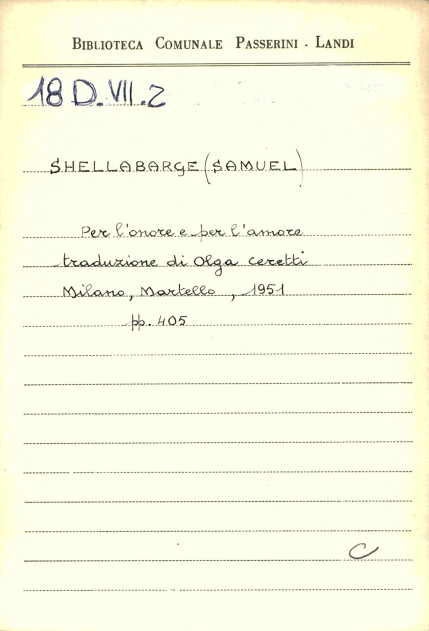 BIBLIOTECA COMUNALE PASSERINI - LANDI
18 D. VII. 2
SHELLABARGE (SAMUEL)
Per l'onore e per l'amore
traduzione di Olga Ceretti
Milano, Martello, 1951
pp. 405
C